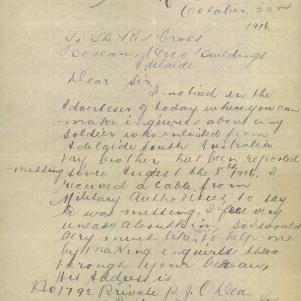 October, 23rd
1916
To The Red Cross
Bereau, Verco Buildings
Adelaide
Dear Sir
I noticed in the
Advertiser of today where you can
make inquiries about any
soldier who enlisted from
Adelaide South Australia
my brother has been reported
missing since August the 8th 1916. I
received a cable from
Military Authorities, to say
he was missing, I feel very
uneasy about him, so would
very much like, to help me
by making inquiries thro
through your bereau,
His Address is
No 1792 Private P. J. O'Dea